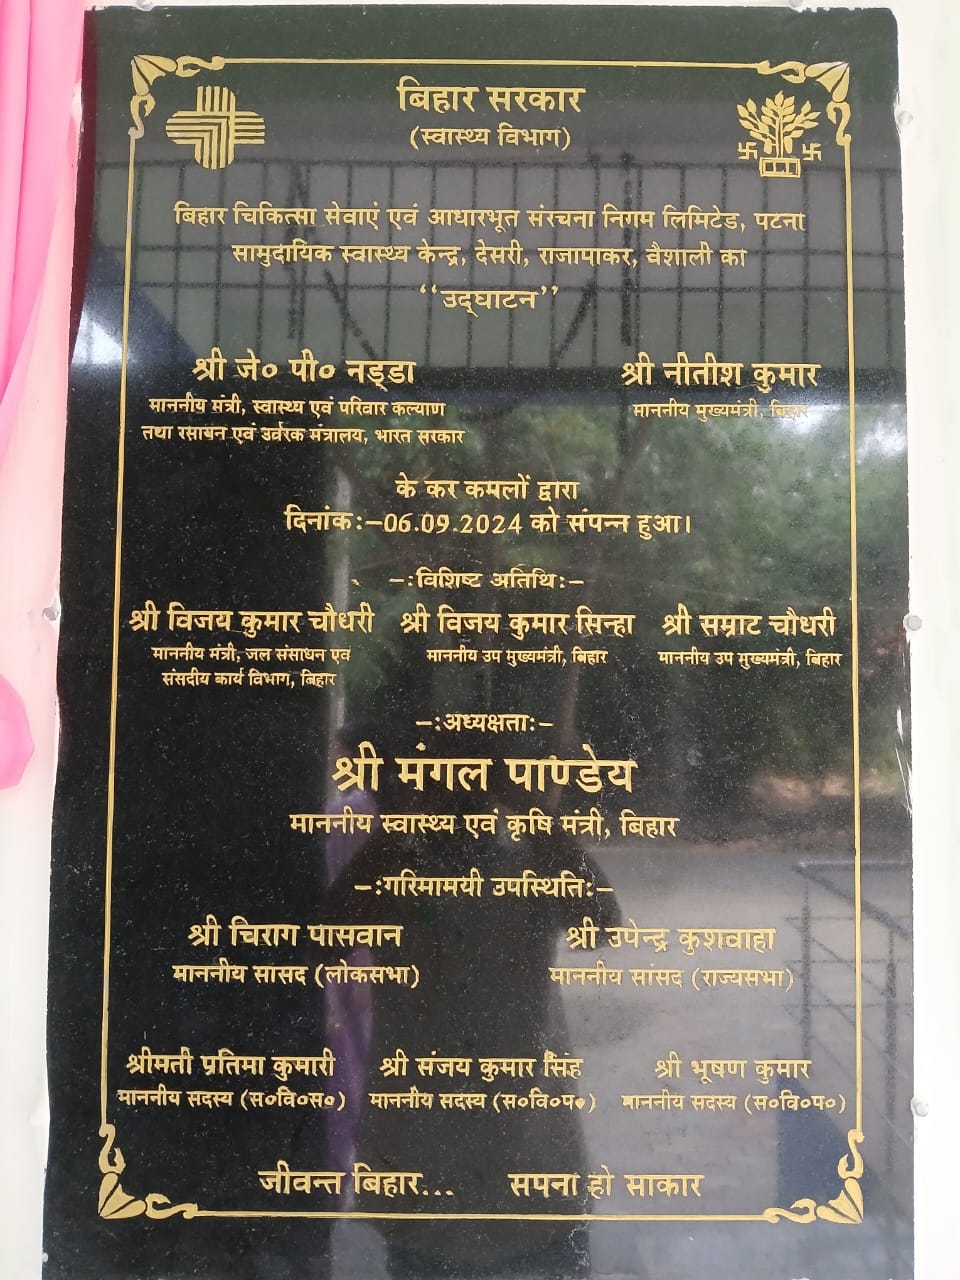 बिहार सरकार
(स्वास्थ्य विभाग)
बिहार चिकित्सा सेवाएं एवं आधारभूत संरचना निगम लिमिटेड, पटना
सामुदायिक स्वास्थ्य केन्द्र, देसरी, राजापाकर, वैशाली का
‘‘उद्घाटन’’
श्री जे० पी० नड्डा
माननीय मंत्री, स्वास्थ्य एवं परिवार कल्याण
तथा रसायन एवं उर्वरक मंत्रालय, भारत सरकार
श्री नीतीश कुमार
माननीय मुख्यमंत्री, बिहार
के कर कमलों द्वारा
दिनांक:–06.09.2024 को संपन्न हुआ।
–:विशिष्ट अतिथि:–
श्री विजय कुमार चौधरी
माननीय मंत्री, जल संसाधन एवं
संसदीय कार्य विभाग, बिहार
श्री विजय कुमार सिन्हा
माननीय उप मुख्यमंत्री, बिहार
श्री सम्राट चौधरी
माननीय उप मुख्यमंत्री, बिहार
–:अध्यक्षता:–
श्री मंगल पाण्डेय
माननीय स्वास्थ्य एवं कृषि मंत्री, बिहार
–:गरिमामयी उपस्थिति:–
श्री चिराग पासवान
माननीय सांसद (लोकसभा)
श्री उपेन्द्र कुशवाहा
माननीय सांसद (राज्यसभा)
श्रीमती प्रतिमा कुमारी
माननीय सदस्य (स०वि०स०)
श्री संजय कुमार सिंह
माननीय सदस्य (स०वि०प०)
श्री भूषण कुमार
माननीय सदस्य (स०वि०प०)
जीवन्त बिहार... सपना हो साकार